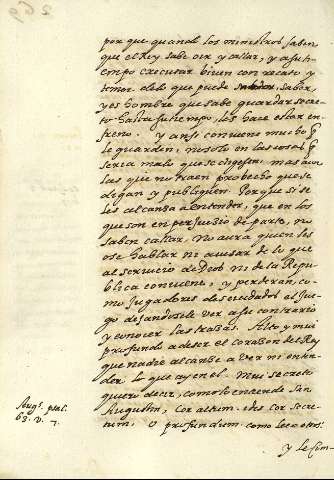 269
porque quando los ministros saben
que el Rey sabe oir y callar, y a su ti-
empo executar biuen con recato y
temor de lo que puede saber,
y es hombre que sabe guardar secre-
to hasta su tiempo, les hace estar en
freno. y ansi conuiene mucho q̃
le guarden, no solo en las cosas q̃
seria malo que se digesen; mas aun
las que no traen probecho que se
digan y publiquen. Porque si se
les alcanza a entender, que en los
que son en perjuizio de parte, no
saben callar, no aura quien les
ose hablar ni auisar de lo que
al seruicio de Dios ni de la Repu-
blica conuiene, y perderan, co-
mo Jugadores descuidados el Jue-
go dejandosele ver a su contrario
y conocer las trabas. Alto y mui
profundo a de ser el corazon del Rey
que nadie alcance a ver ni enten-
der lo que ay en el. Mui secreto
quiero decir, como lo entiende San
Augustin, Cor altum, ides cor secre-
tum, o profundum. como lee otro:
Augs. psal.
63. v. 7.
y le Cim-